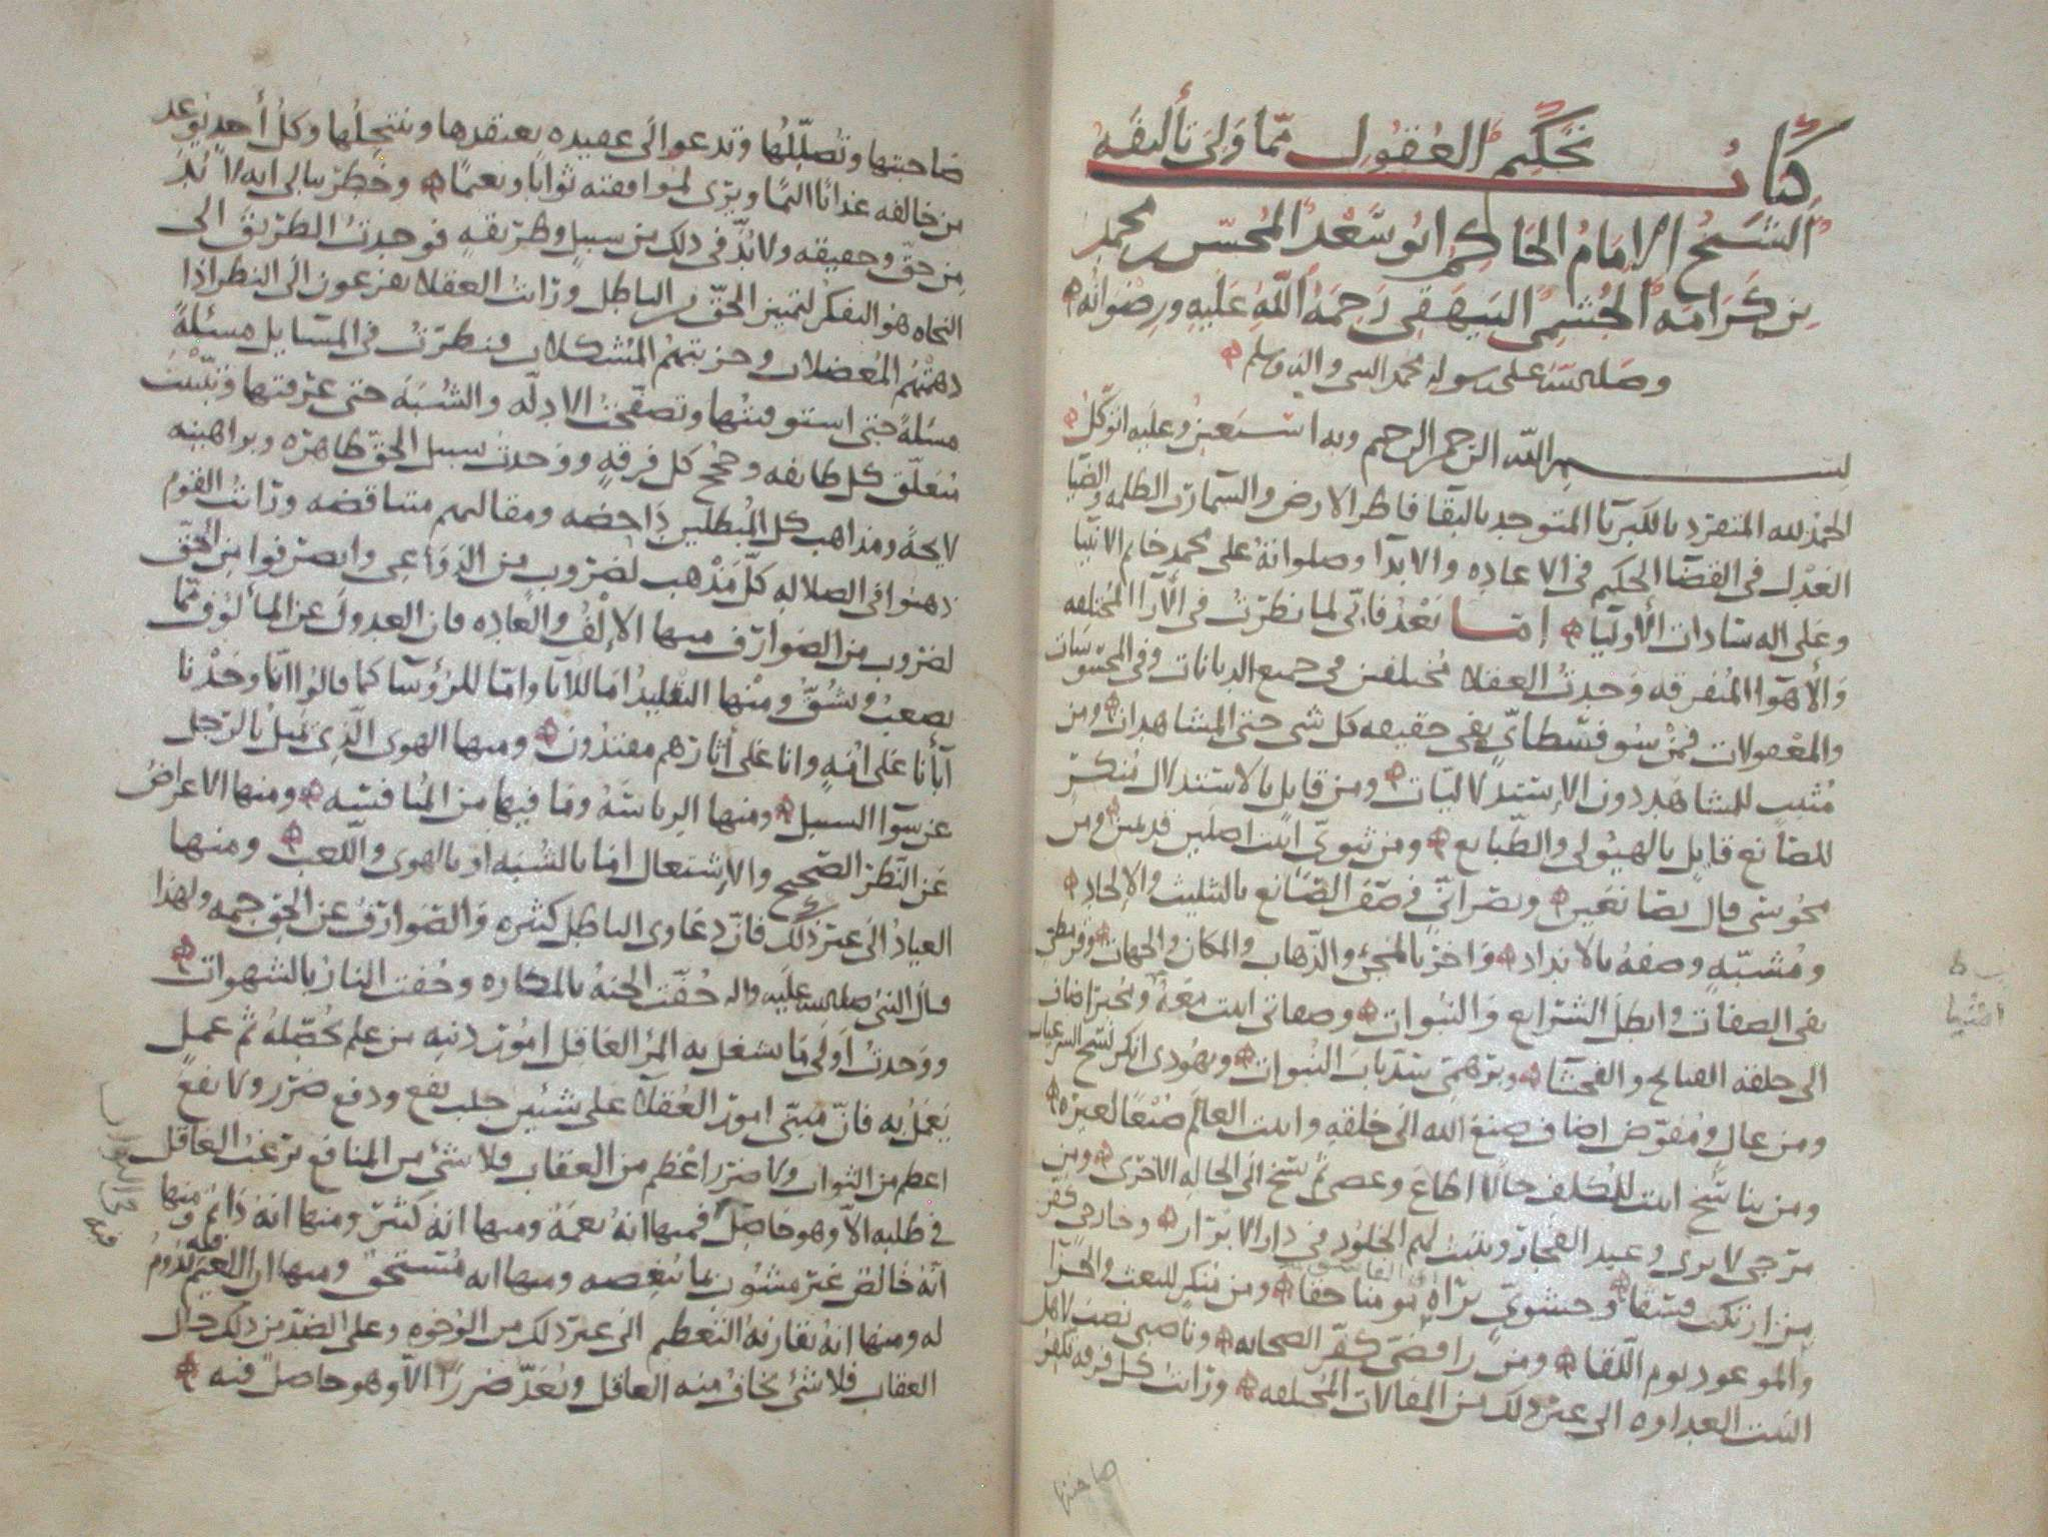 كتاب تحكيم العقول مما ولي تأليفه
الشيخ الإمام الحاكم ابو سعد المحسن بن محمد
بن كرامه الجشمي البيهقي رحمة الله عليه ورضوانه
وصلى الله على رسوله محمد النبي واله وسلم
بسم الله الرحمن الرحيم وبه استعين وعليه اتوكل
الحمد لله المتفرد بالكبريا المتوحد بالبقا فاطر الارض والسما رب الظلمه والضيا
العدل في القضا الحكيم في الاعاده والابدا وصلواته على محمد خاتم الانبيا
وعلى اله سادات الأوليا اما بعد فاني لما نظرت في الآرا المختلفه
والأهوا المتفرقه وجدت العقلا مختلفين في جميع الديانات وفي المحسوسات
والمعقولات فمن سوفسطائي يفي حقيقه كل شي حتى المشاهدات ومن
مثبت للمشاهد دون الاستدلاليات ومن قايل بالاستدلال منكر
للصانع قايل بالهيولى والطبايع ومن ثنوي اثبت اصلين قديمين ومن
مجوسي قال بصانعين ونصراني وصف الصانع بالتثليث والالحاد
ومشبه وصفه بالانداد واخر بالمجئ والذهاب والمكان والجهات وقرمطي
نفى الصفات وابطل الشرايع والنبوات وصفاتي اثبت معه ومجبر اضاف
الى خلقه القبايح والفحشا وبرهمي سد باب النبوات ويهودي انكر نسخ الشرعيات
ومن غال ومفوض اضاف صنع الله الى خلقه واثبت العالم صنعا لغيره
ومن تناسخ اثبت للمكلف حالا اطاع وعصى ثم نسخ الى الحاله الأخرى ومن
مرجي لا يرى وعيد الفجار ويثبت لهم الخلود في دار الابرار وخارجي كفر
من ارتكب فسقا وحشوي يراه مؤمنا حقا ومن منكر للبعث والجزا
والموعود يوم اللقا ومن رافضي كفر الصحابه وناصبي نصب لاهل
البيت العداوه الى غير ذلك من المقالات المختلفه ورأيت كل فرقه تكفر
صاحبتها
صاحبتها وتضللها وتدعو الى عقيده يعتقدها وينتحلها وكل أحد يوعد
من خالفه عذابا اليما ويرى لموافقته ثوابا ونعيما وخطر ببالي انه لا بد
من حق وحقيقه ولا بد في ذلك من سبيل وطريقه فوجدت الطريق الى
النجاه هو التفكر لتمييز الحق من الباطل ورأيت العقلا يفزعون الى النظر اذا
دهمتهم المعضلات وحزبتهم المشكلات فنظرت في المسايل مسئلة
مسئلة حتى استوفيتها وتصفحت الادله والشبه حتى عرفتها وتبينت
متعلق كل طايفه وحجج كل فرقه ووجدت سبيل الحق ظاهره وبراهينه
لايحه ومذاهب كل المبطلين داحضه ومقالتهم متناقضه ورأيت القوم
ذهبوا في الضلاله كل مذهب لضروب من الدواعي وانصرفوا من الحق
لضروب من الصوارف منها الالف والعاده فان العدول عن المألوف مما
يصعب ويشق ومنها التقليد اما للآبا واما للرؤسا كما قالوا انا وجدنا
آبأنا على امه وانا على أثارهم مقتدون ومنها الهوى الذي يميل بالرجل
عن سوا السبيل ومنها الرياسه وما فيها من المنافسه ومنها الاعراض
عن النظر الصحيح والاشتغال اما بالشبه او بالهوى واللعب ومنها
العناد الى غير ذلك فان دعاوى الباطل كثيره والصوارف عن الحق جمه ولهذا
قال النبي صلى الله عليه واله حفت الجنه بالمكاره وحفت النار بالشهوات
ووجدت أولى ما يشغل به المرؤ العاقل امور دينه من علم يحصله ثم عمل
يعمل به فان مبنى امور العقلا على شيئين جلب نفع ودفع ضرر ولا نفع
اعظم من الثواب ولا ضرر اعظم من العقاب فلا شئ من المنافع يرغب العاقل
في طلبه الا وهو حاصل فيه فمنها انه نعمة ومنها انه كثير ومنها انه دائم ومنها
انه خالص غير مشوب بما ينغصه ومنها انه مستحق ومنها ان النعيم يدوم
له ومنها انه يقارنه التعظيم الى غير ذلك من الوجوه وعلى الضد من ذلك حال
العقاب فلا شئ يخاف منه العاقل ويعد ضررا الا وهو حاصل فيه